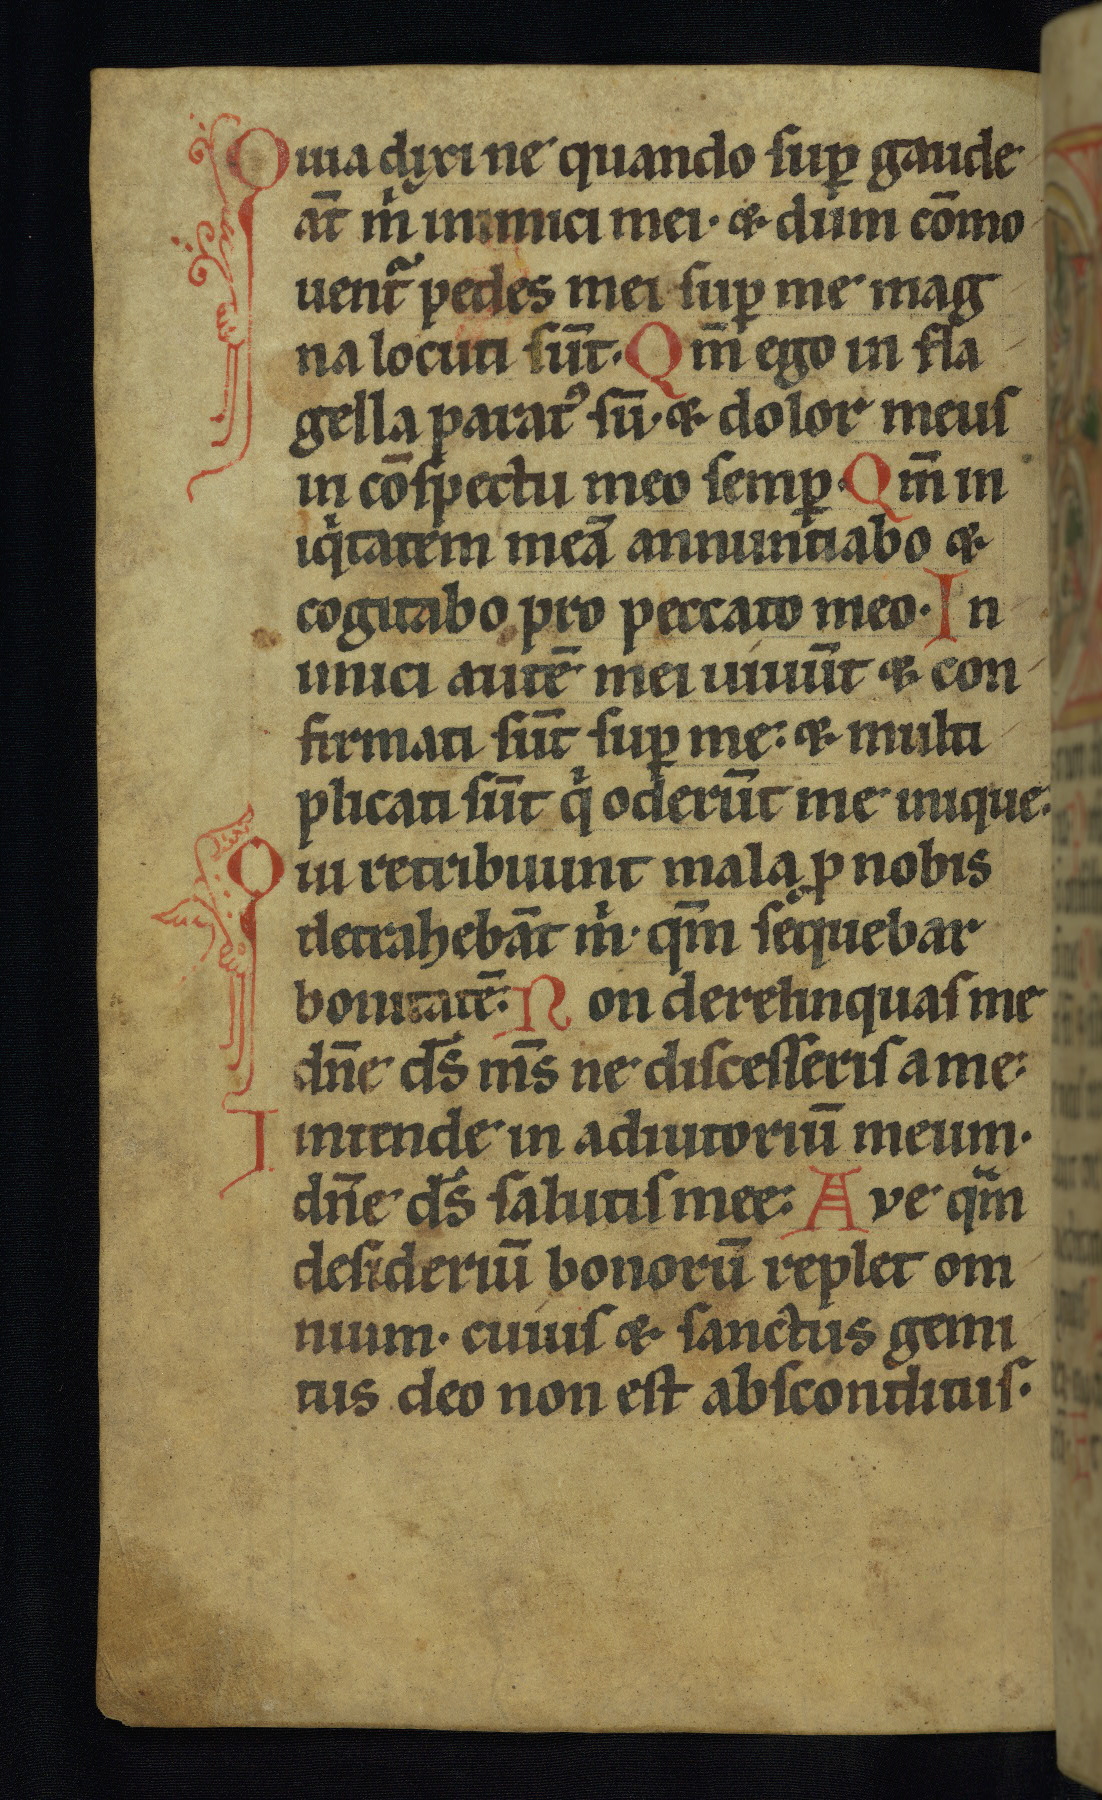 Quia dixi ne quando suꝑ gaude
āt m̊ inimici mei· ⁊ dum cōmo
uentᷓ pedes mei suꝑ me mag
na locuti sūt. Qm̄ ego in fla
gella parat᷒ sū· ⁊ dolor meus
in cōspectu meo semꝑ. Qm̄ in
iq̇tatem meā annuntiabo ⁊
cogitabo pro peccato meo· In
imici autē mei uiuūt ⁊ con
firmati sūt suꝑ me: ⁊ multi
plicati sūt q̇ oderūt me inique:
Qui retribuunt mala ꝓ nobis
detrahebāt m̊· qm̄ sequebar
bonitatē: Non derelinquas me
dn̄e ds̄ ms̄ ne discesseris a me:
Intende in adiutoriū meum·
dn̄e ds̄ salutis mee: Ave qm̄
desideriū bonorū replet om
nium· cuius ⁊ sanctus gemi
tus deo non est absconditus·